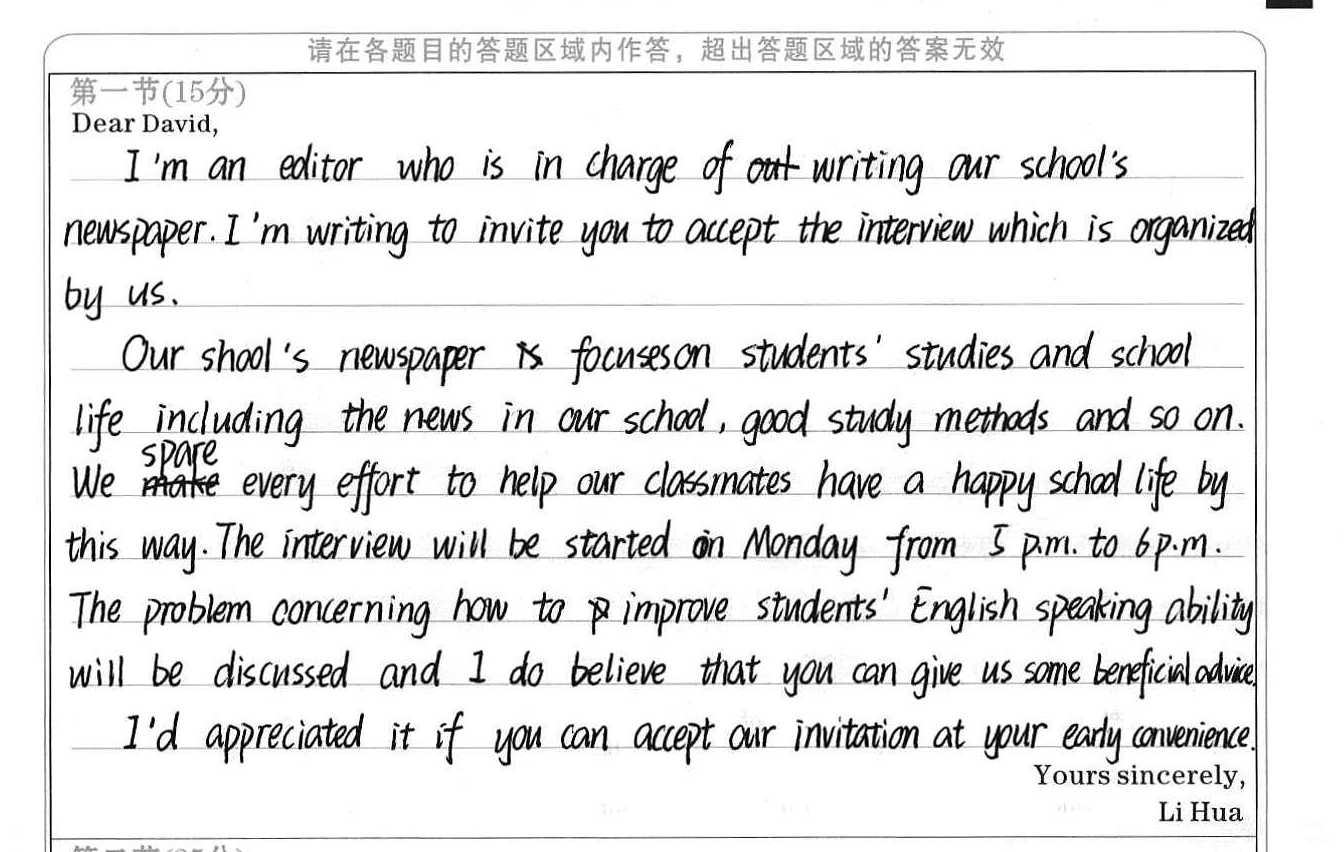 请在各题目的答题区域内作答，超出答题区域的答案无效
第一节(15分)
Dear David,
I'm an editor who is in charge of out writing our school's
newspaper. I'm writing to invite you to accept the interview which is organized
by us.
Our shool's newspaper is focuses on students' studies and school
life including the news in our school, good study methods and so on.
spare
We make every effort to help our classmates have a happy school life by
this way. The interview will be started on Monday from 5 p.m. to 6 p.m.
The problem concerning how to improve students' English speaking ability
will be discussed and I do believe that you can give us some beneficial advice.
I'd appreciated it if you can accept our invitation at your early convenience.
Yours sincerely,
Li Hua